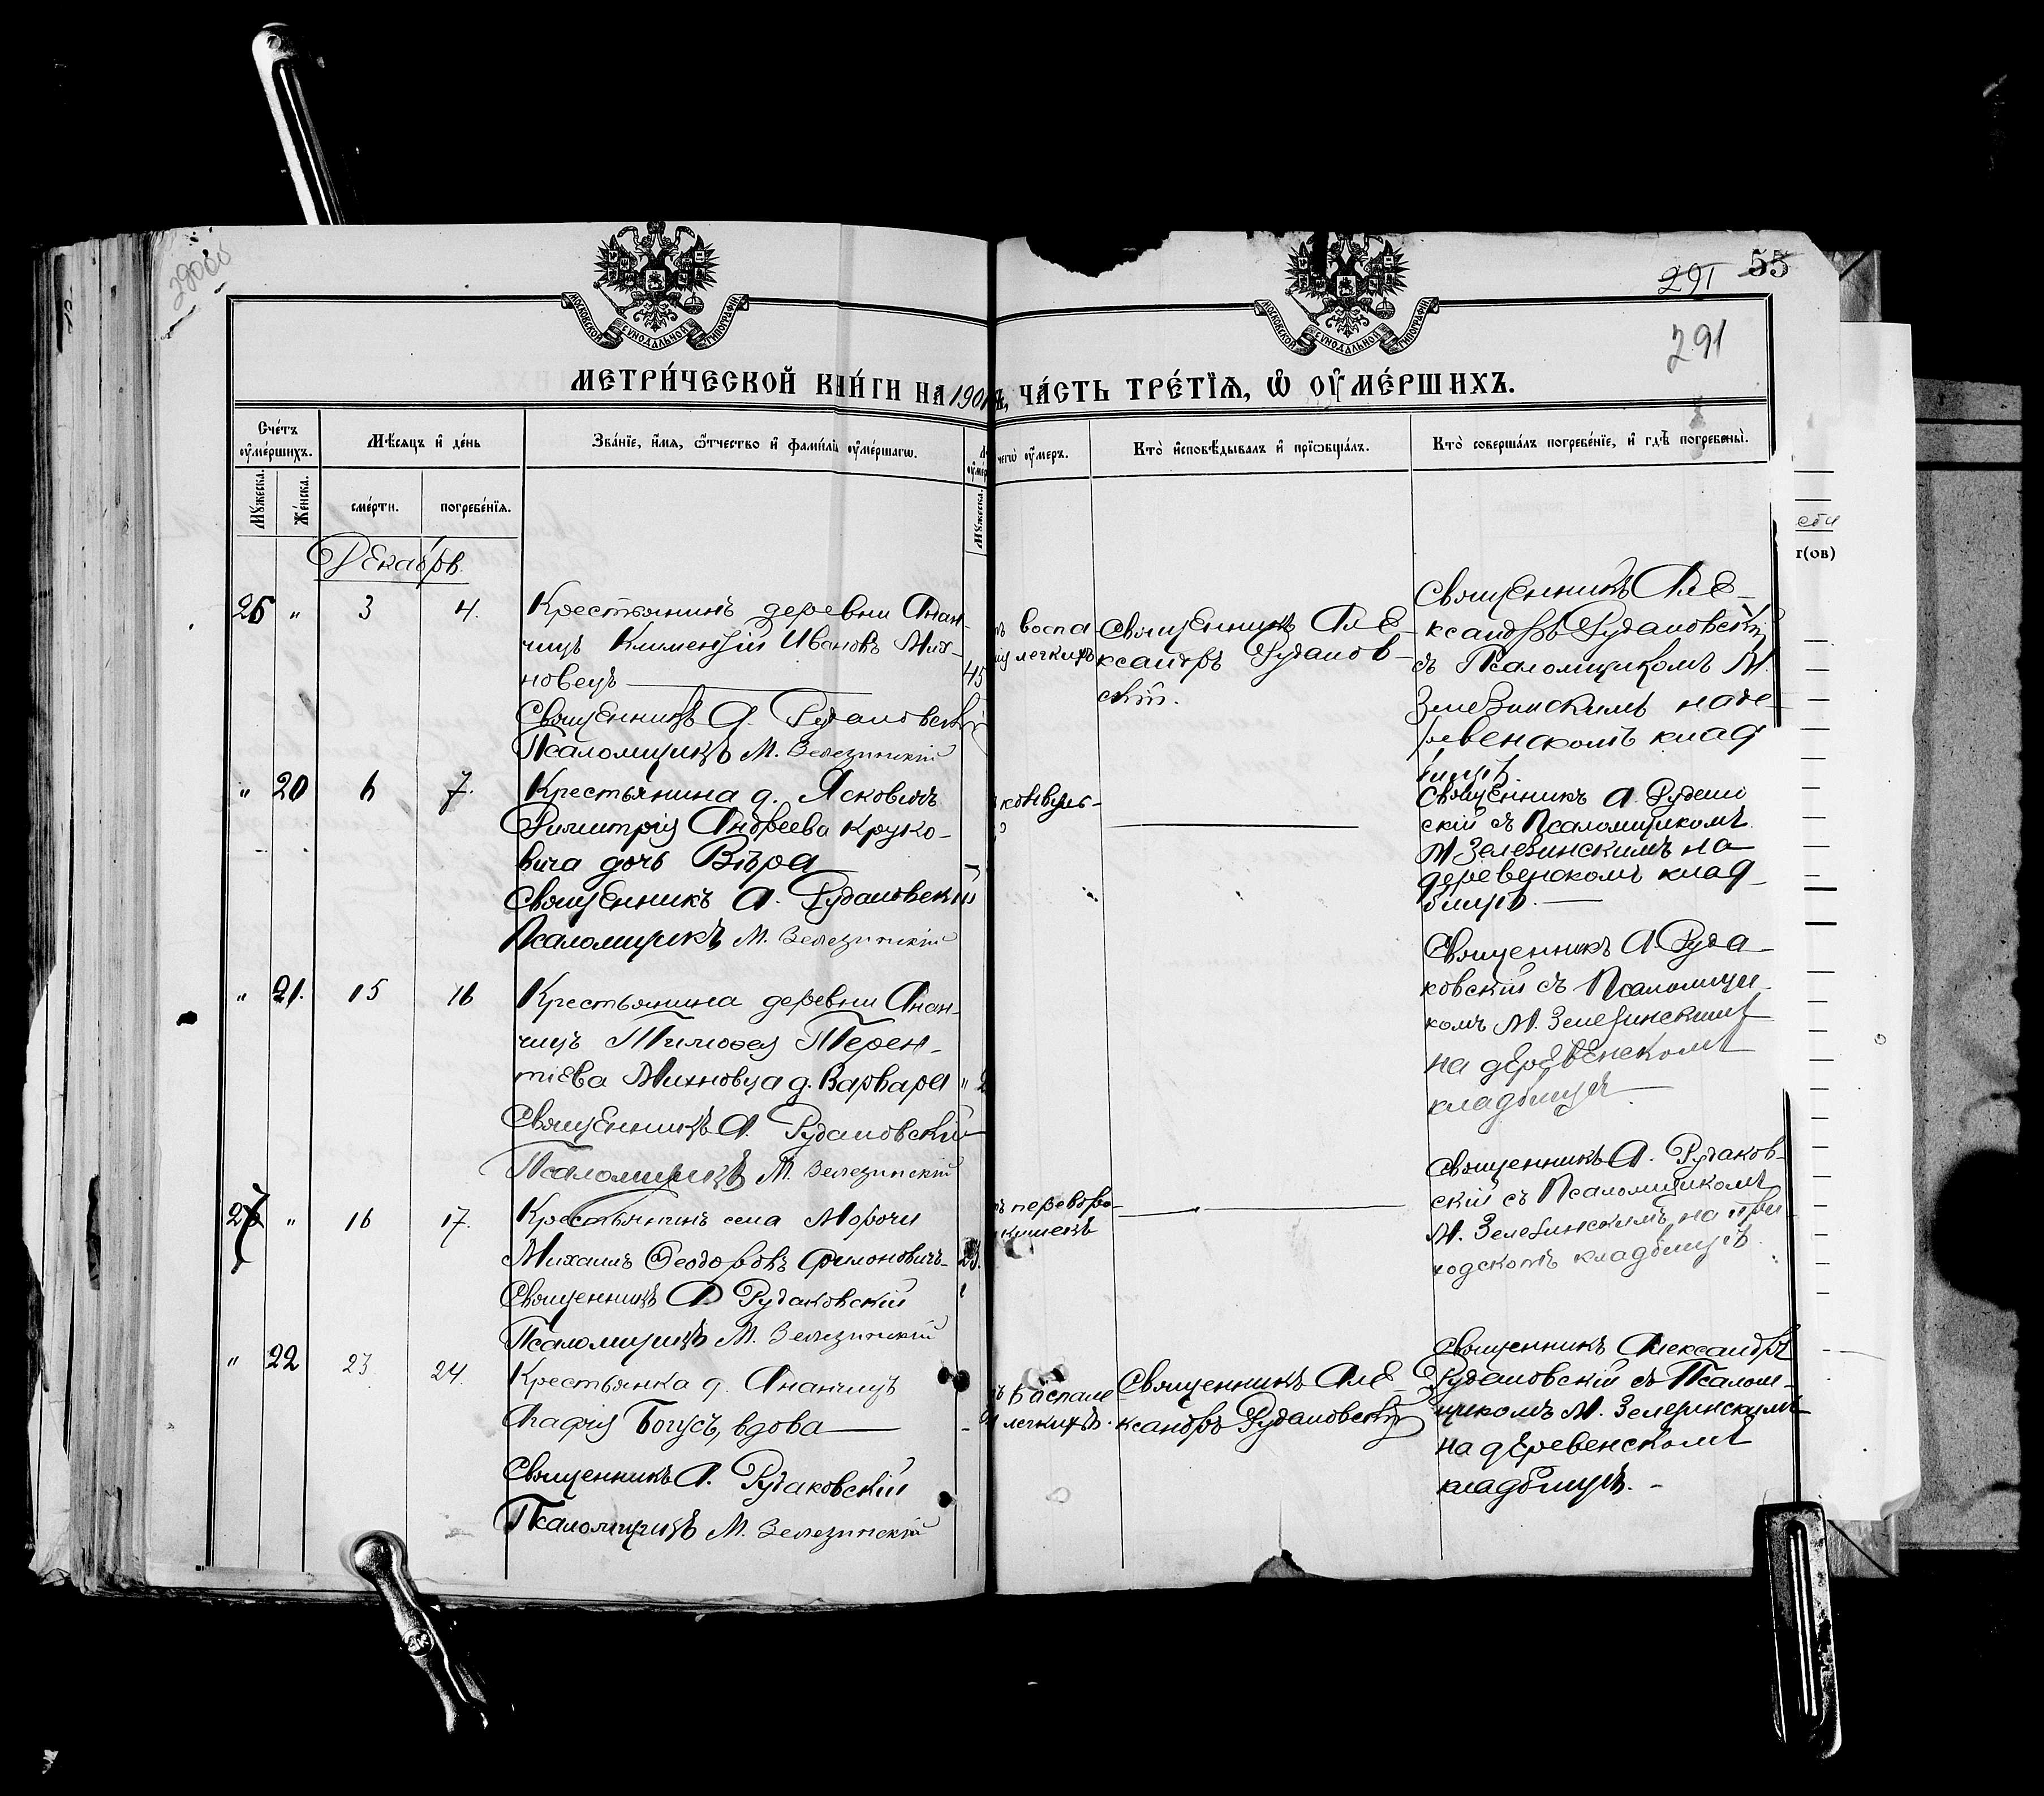 29000
МОСКОВСКОЙ СѴНОДАЛЬНОЙ ТИПОГРАФІИ
МОСКОВСКОЙ СѴНОДАЛЬНОЙ ТИПОГРАФІИ
291 55
291
МЕТРИ́ЧЕСКОЙ КНИ́ГИ НА 190
Ъ, ЧА́СТЬ ТРЕ́ТЇѦ, Ѡ ОУМЕ́РШИХЪ.
Сче́тъ оумершихъ.
Мѣсѧцъ и де́нь
Зва́нїе, и́мѧ, ѿчество и фами́лїѧ оуме́ршагѡ.
чегѡ̀ оу́меръ.
Кто̀ исповѣ́дывалъ и прїѡбща́лъ.
Кто̀ соверша́лъ погребе́нїе, и гдѣ̀ погребены̀.
Мꙋжеска.
Же́нска.
сме́рти.
погребе́нїѧ.
Мꙋжеска.
Декабрь.
26 " 3 4.
Крестьянинъ деревни Анан-
чицъ Климентій Ивановъ Мих-
новецъ
45
Священникъ А. Рудаковскій
Псаломщикъ М. Зелезинскій
воспа
легкихъ
Священникъ Але-
ксандръ Рудаков-
скій.
Священникъ Але-
ксандръ Рудаковскій
съ Псаломщикомъ М.
Зелезинскимъ на де-
ревенскомъ клад
бищѣ.
" 20 6 7.
Крестьянина д. Ясковичъ
Димитрія Андреева Круко-
вича дочь Вѣра
Священникъ А. Рудаковскій
Псаломщикъ М. Зелезинскій
конвуль-
Священникъ А. Рудако
скій съ Псаломщикомъ
М Зелезинскимъ на
деревенскомъ клад-
бищѣ.
" 21. 15 16
Крестьянина деревни Анан-
чицъ Тимофея Терен-
тіева Михновца д. Варвара
" 2
Священникъ А. Рудаковскій
Псаломщикъ М. Зелезинскій
Священникъ А. Руда-
ковскій съ Псаломщи-
комъ М. Зелезинскимъ
на деревенскомъ
кладбищѣ
27 " 16 17.
Крестьянинъ села Морочи
Михаилъ Феодоровъ Филоновичъ
23.
Священникъ А. Рудаковскій
Псаломщикъ М. Зелезинскій
переворо-
кишекъ
Священникъ А. Рудаков-
скій съ Псаломщикомъ
М. Зелезинскимъ на при-
ходскомъ кладбищѣ
" 22 23 24.
Крестьянка д. Ананчицъ
Агафія Богусъ, вдова
Священникъ А. Рудаковскій
Псаломщикъ М. Зелезинскій
воспале
легкихъ.
Священникъ Але-
ксандръ Рудаковскій
Священникъ Александръ
Рудаковскій съ Псалом-
щикомъ М. Зелезинскимъ
на деревенскомъ
кладбищѣ.
г(ов)